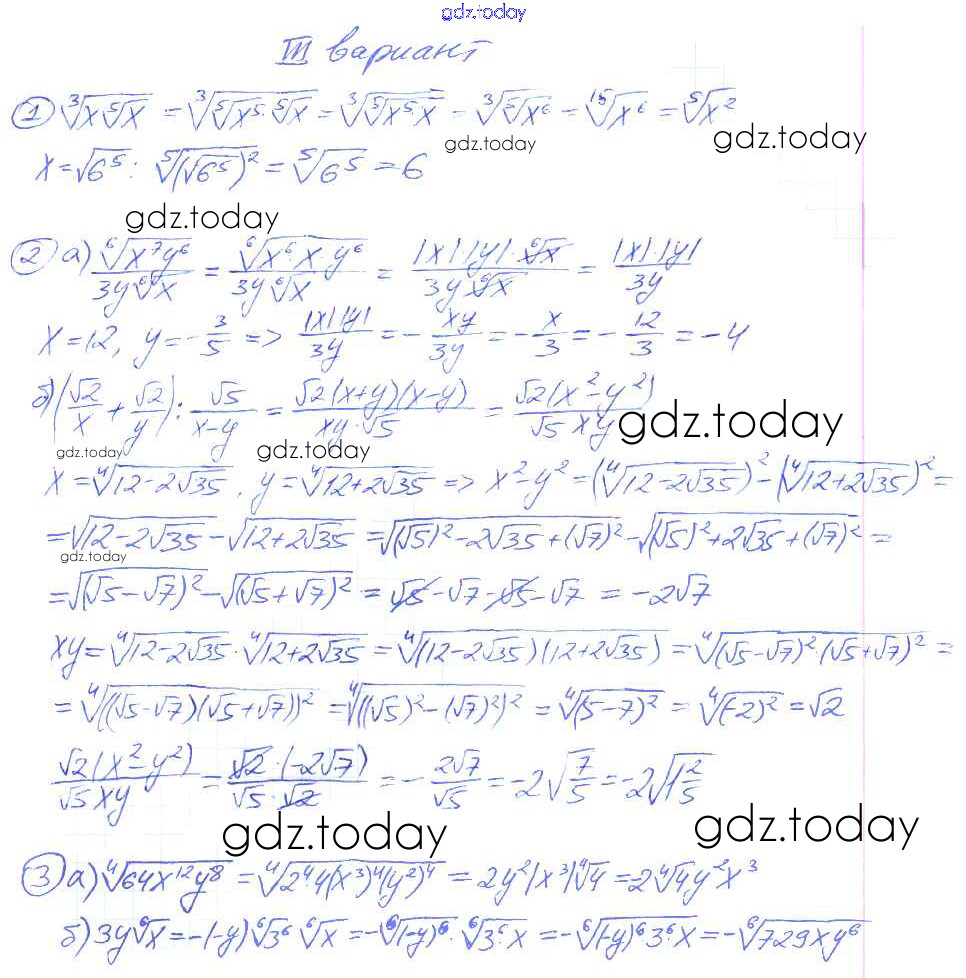 gdz.today
III вариант
① ∛(x⁵√x) = ∛(⁵√(x⁵·⁵√x)) = ∛(⁵√(x⁵·x)) = ∛(⁵√x⁶) = ¹⁵√x⁶ = ⁵√x²
gdz.today gdz.today
x = √6⁵ : ⁵√(√6⁵)² = ⁵√6⁵ = 6
gdz.today
② а) ⁶√(x⁷y⁶)/(3y⁶√x) = ⁶√(x⁶·x·y⁶)/(3y⁶√x) = |x|·|y|·⁶√x/(3y⁶√x) = |x|·|y|/3y
x = 12, y = -3/5 => |x||y|/3y = -xy/3y = -x/3 = -12/3 = -4
б) (√2/x + √2/y) : √5/(x-y) = √2(x+y)(x-y)/(xy·√5) = √2(x²-y²)/(√5xy)
gdz.today gdz.today gdz.today
x = ⁴√(12-2√35), y = ⁴√(12+2√35) => x²-y² = (⁴√(12-2√35))² - (⁴√(12+2√35))² =
= √(12-2√35) - √(12+2√35) = √((√5)²-2√35+(√7)²) - √((√5)²+2√35+(√7)²) =
gdz.today
= √((√5-√7)²) - √((√5+√7)²) = √5-√7-√5-√7 = -2√7
xy = ⁴√(12-2√35)·⁴√(12+2√35) = ⁴√((12-2√35)(12+2√35)) = ⁴√((√5-√7)²·(√5+√7)²) =
= ⁴√(((√5-√7)(√5+√7))²) = ⁴√(((√5)²-(√7)²)²) = ⁴√((5-7)²) = ⁴√((-2)²) = √2
√2(x²-y²)/(√5xy) = √2·(-2√7)/(√5·√2) = -2√7/√5 = -2√(7/5) = -2√(1 2/5)
gdz.today gdz.today
③ а) ⁴√(64x¹²y⁸) = ⁴√(2⁴·4(x³)⁴(y²)⁴) = 2y²|x³|⁴√4 = 2⁴√4y²x³
б) 3y⁶√x = -(-y)⁶√3⁶·⁶√x = -⁶√(-y)⁶·⁶√(3⁶·x) = -⁶√((-y)⁶3⁶·x) = -⁶√(729xy⁶)